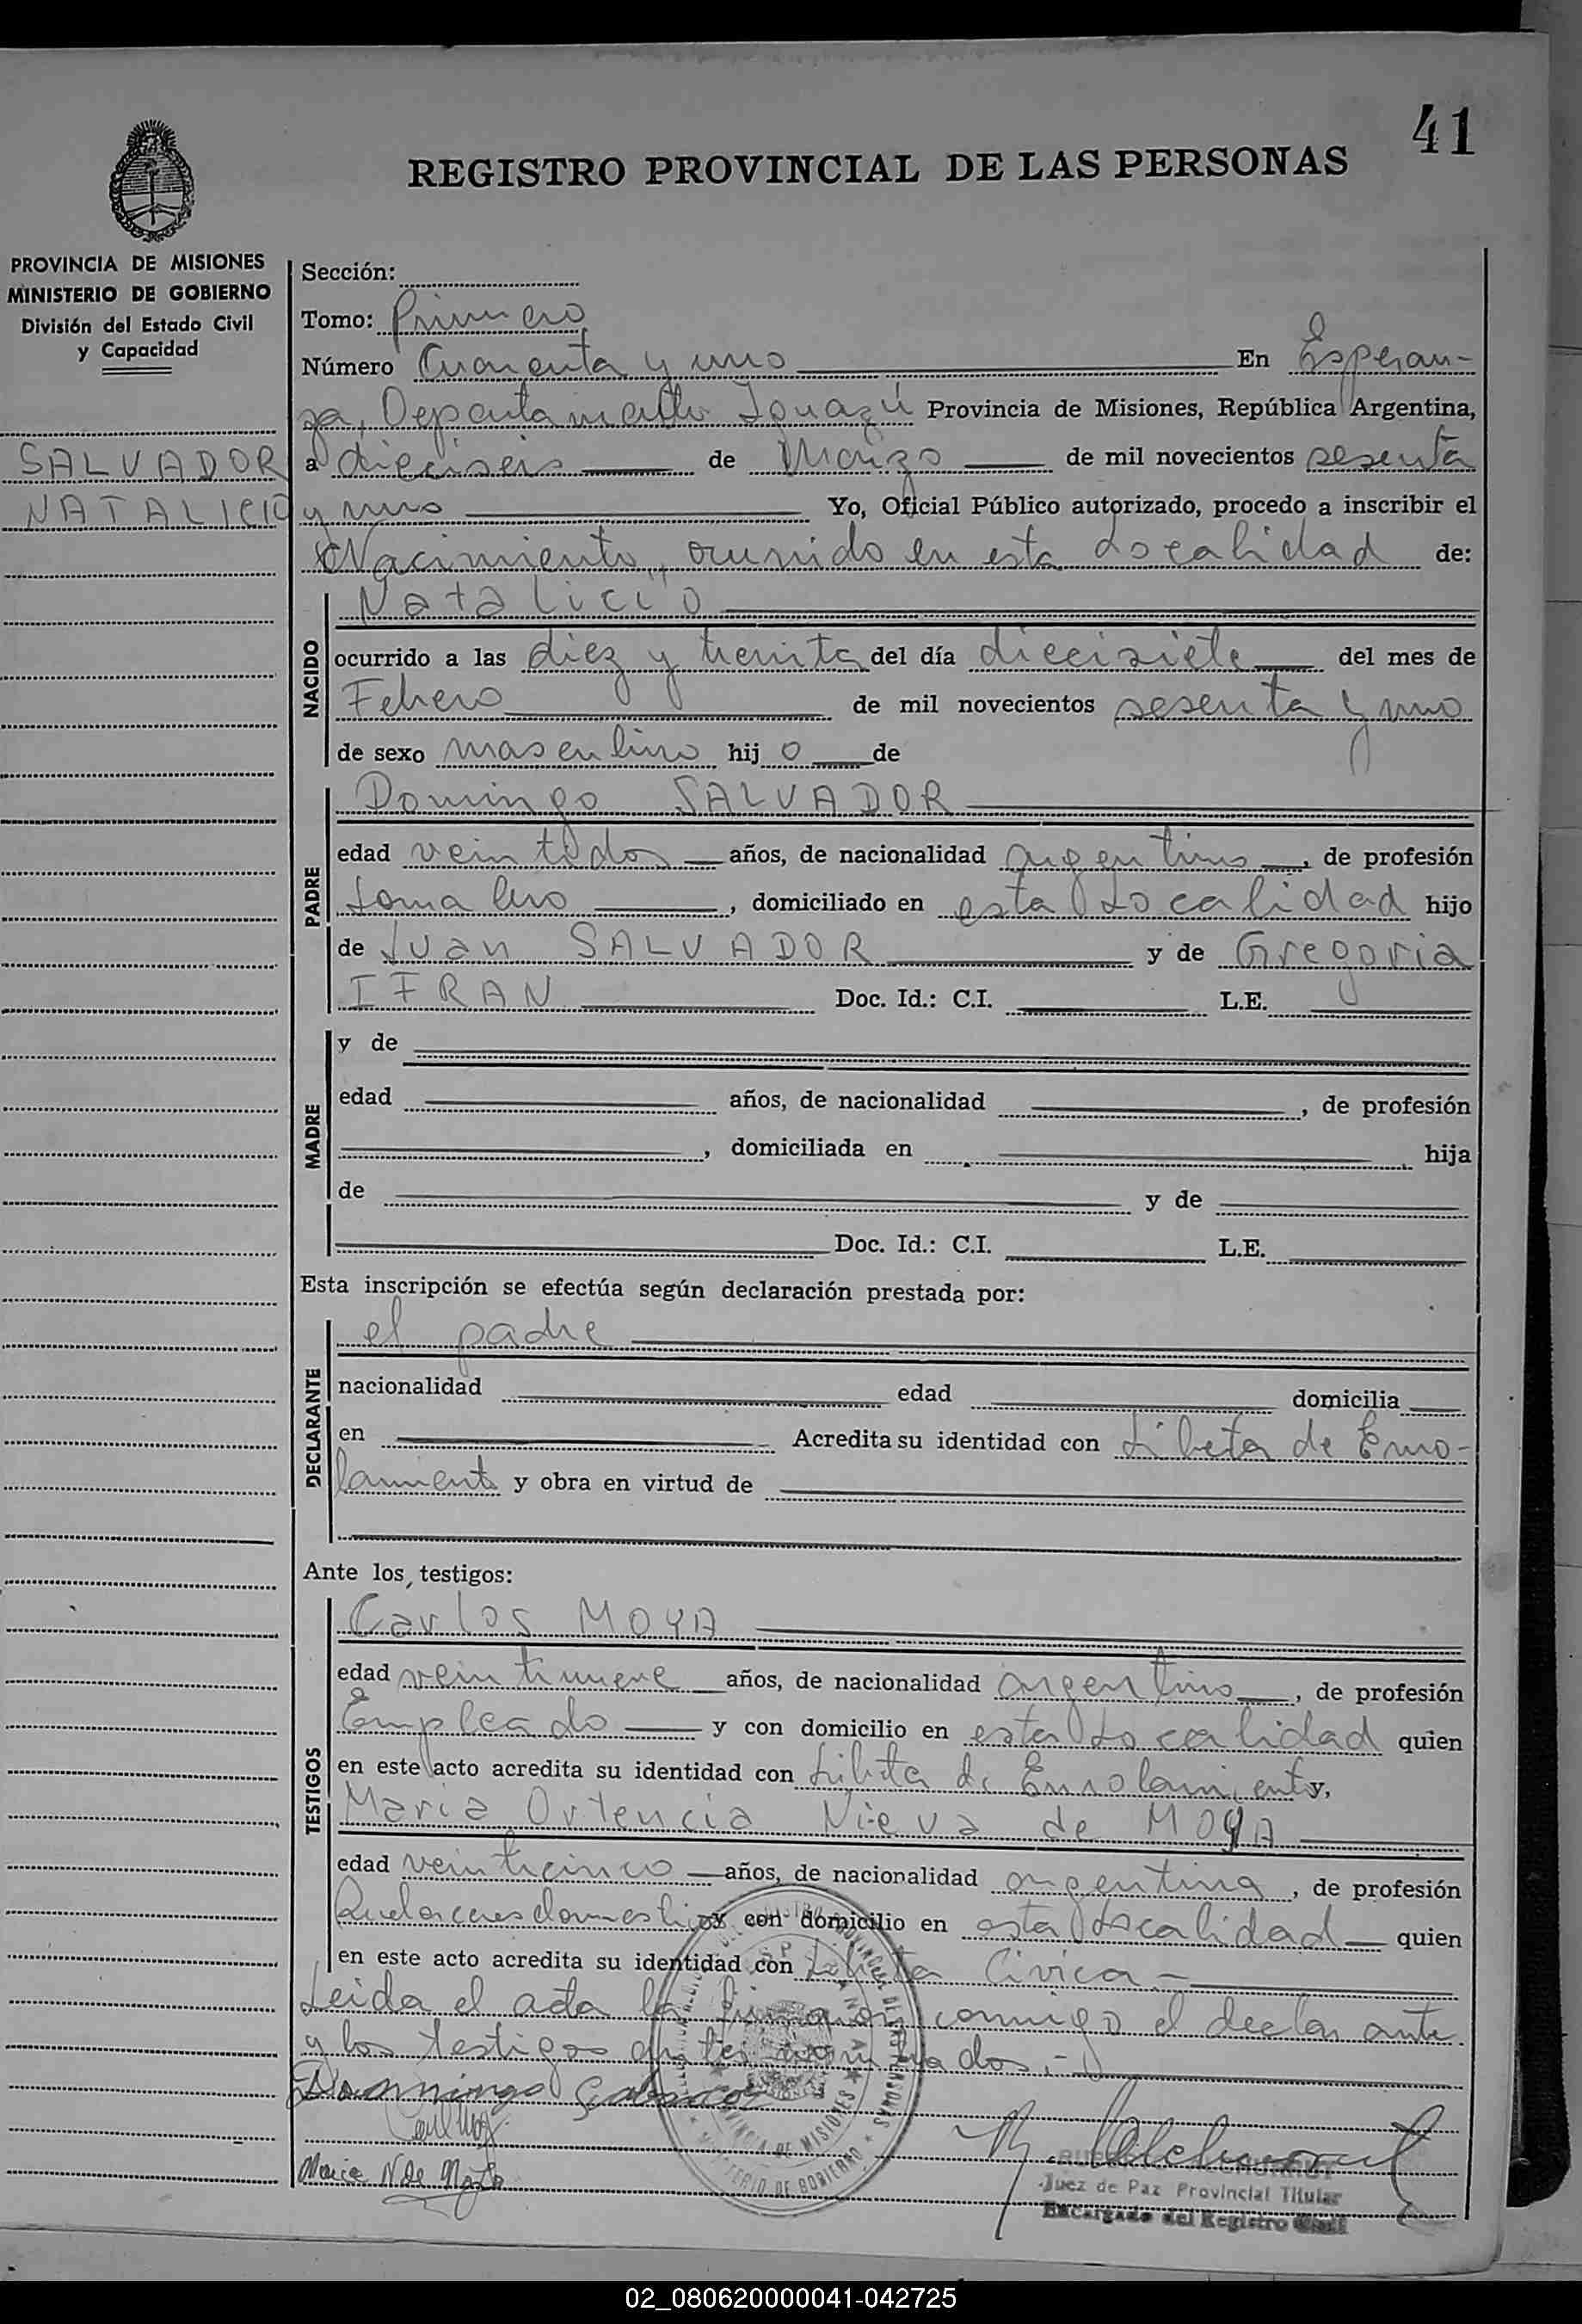 41
REGISTRO PROVINCIAL DE LAS PERSONAS
PROVINCIA DE MISIONES
MINISTERIO DE GOBIERNO
División del Estado Civil
y Capacidad
SALVADOR
NATALICIO
Sección:
Tomo: Primero
Número Cuarenta y uno En Esperan-
za, Departamento Iguazú Provincia de Misiones, República Argentina,
a dieciseis de Marzo de mil novecientos sesenta
y uno Yo, Oficial Público autorizado, procedo a inscribir el
Nacimiento, ocurrido en esta Localidad de:
NACIDO
Natalicio
ocurrido a las diez y treinta del día diecisiete del mes de
Febrero de mil novecientos sesenta y uno
de sexo masculino hijo de
PADRE
Domingo SALVADOR
edad veintidos años, de nacionalidad argentino, de profesión
Jornalero, domiciliado en esta Localidad hijo
de Juan SALVADOR y de Gregoria
IFRAN Doc. Id.: C.I. L.E.
MADRE
y de
edad años, de nacionalidad , de profesión
, domiciliada en hija
de y de
Doc. Id.: C.I. L.E.
Esta inscripción se efectúa según declaración prestada por:
DECLARANTE
el padre
nacionalidad edad domicilia
en Acredita su identidad con Libreta de Enro-
lamiento y obra en virtud de
Ante los testigos:
TESTIGOS
Carlos MOYA
edad veintinueve años, de nacionalidad argentino, de profesión
Empleado y con domicilio en esta Localidad quien
en este acto acredita su identidad con Libreta de Enrolamiento y,
Maria Ortencia Nieva de MOYA
edad veinticinco años, de nacionalidad argentina, de profesión
Quehaceres domesticos y con domicilio en esta Localidad quien
en este acto acredita su identidad con Libreta Civica -
Leida el acta la firman conmigo el declarante
y los testigos antes nombrados.-
Domingo Salvador
Maria N de Moya
PROVINCIA DE MISIONES
MINISTERIO DE GOBIERNO
Juez de Paz Provincial Titular
Encargado del Registro Civil
02_080620000041-042725